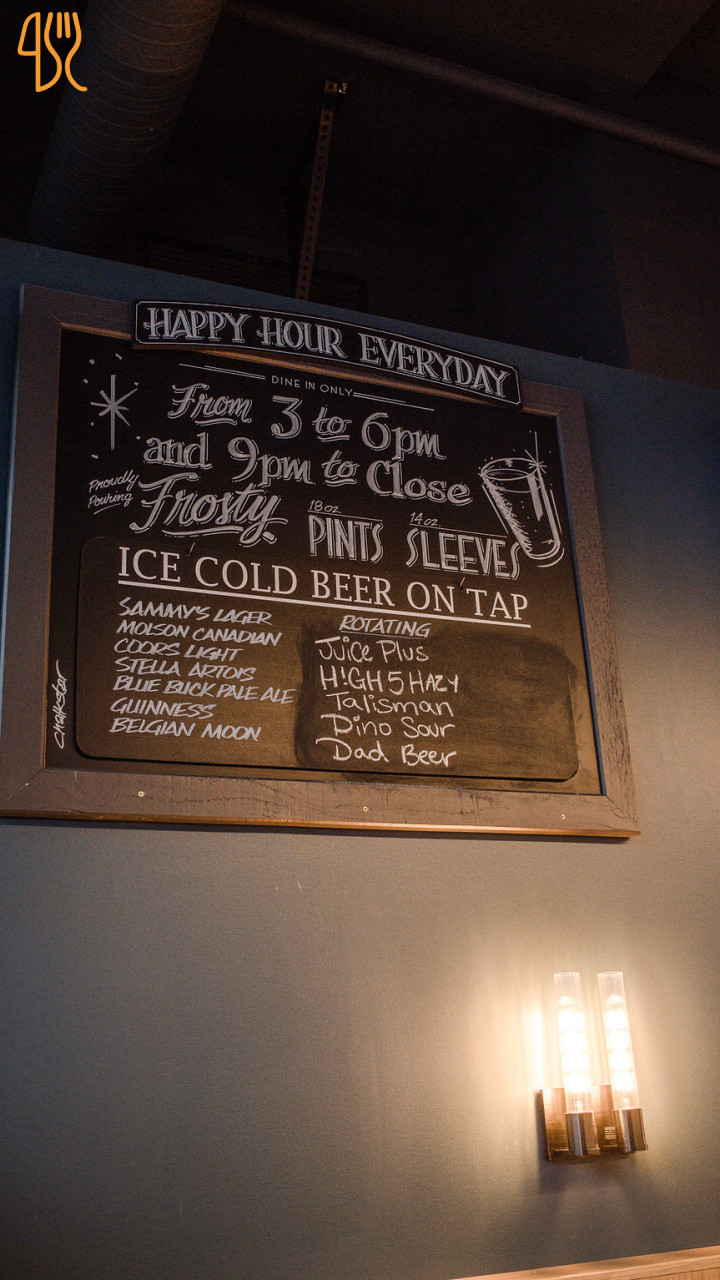 HAPPY HOUR EVERYDAY
DINE IN ONLY
From 3 to 6pm
and 9pm to Close
Proudly
Pouring
Frosty
18 oz.
PINTS
14 oz.
SLEEVES
ICE COLD BEER ON TAP
SAMMY'S LAGER
MOLSON CANADIAN
COORS LIGHT
STELLA ARTOIS
BLUE BUCK PALE ALE
GUINNESS
BELGIAN MOON
ROTATING
Juice Plus
H!GH 5 HAZY
Talisman
Dino Sour
Dad Beer
chalkstar